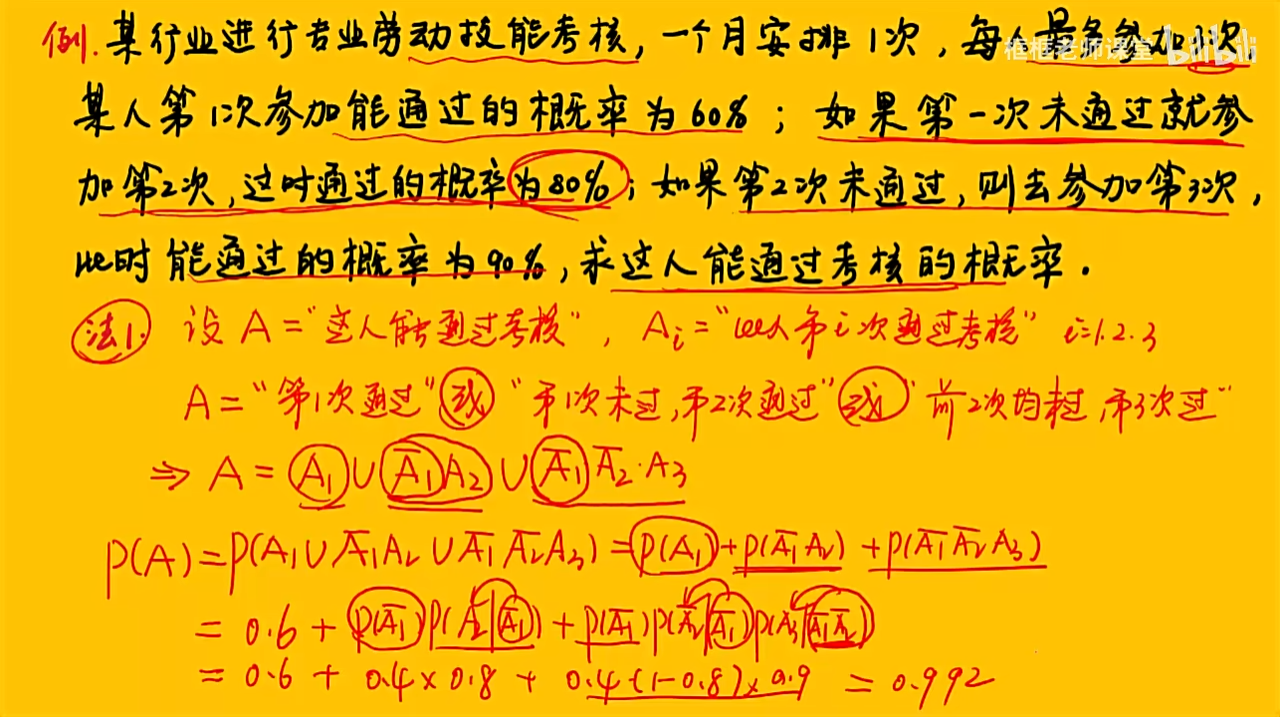 例.某行业进行专业劳动技能考核,一个月安排1次,每人最多参加3次,
框框老师课堂 bilibili
某人第1次参加能通过的概率为60%;如果第一次未通过就参
加第2次,这时通过的概率为80%;如果第2次未通过,则去参加第3次,
此时能通过的概率为90%,求这人能通过考核的概率.
法1. 设A="这人能通过考核", Aᵢ="此人第i次通过考核" i=1.2.3
A="第1次通过"或"第1次未过,第2次通过"或"前2次均未过,第3次过"
⇒ A = A₁ ∪ A̅₁A₂ ∪ A̅₁ A̅₂·A₃
P(A)=P(A₁∪A̅₁A₂∪A̅₁A̅₂A₃)=P(A₁)+P(A̅₁A₂)+P(A̅₁A̅₂A₃)
= 0.6 + P(A̅₁)P(A₂|A̅₁)+P(A̅₁)P(A̅₂|A̅₁)P(A₃|A̅₁A̅₂)
= 0.6 + 0.4×0.8 + 0.4(1-0.8)×0.9 = 0.992